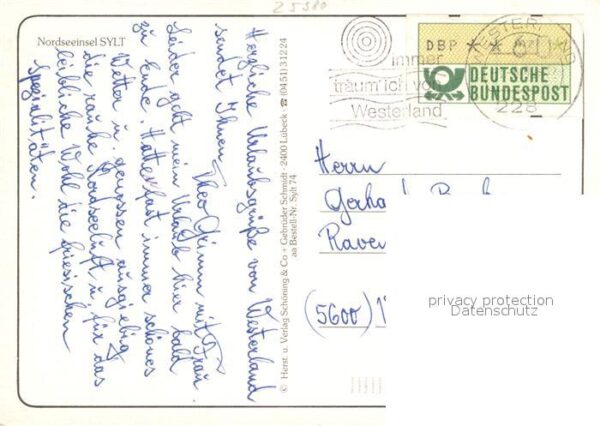 25380
Nordseeinsel SYLT
Herzliche Urlaubsgrüße von Westerland
sendet Ihnen
Theo Grimm mit Frau
Leider geht mein Urlaub hier bald
zu Ende. Hatte fast immer schönes
Wetter u. genossen ausgiebig
die rauhe Nordseeluft u. für das
leibliche Wohl die friesischen
Spezialitäten.
© Herst. u. Verlag Schöning & Co + Gebrüder Schmidt · 2400 Lübeck · ☎ (0451) 31224
aa Bestell-Nr. Sylt 74
immer
träum ich von
Westerland
WESTERLAND
228
DBP
DEUTSCHE
BUNDESPOST
Herrn
Gerha
Raven
(5600) 1
privacy protection
Datenschutz